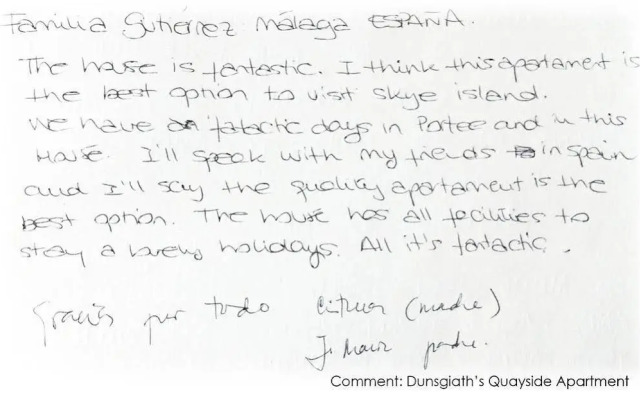 Familia Gutiérrez Málaga ESPAÑA.
The house is fantastic. I think this apartament is
the best option to visit Skye island.
We have an fatactic days in Portee and in this
House. I'll speak with my frieds to in Spain
and I'll say the quality apartament is the
best option. The house has all facilities to
stay a lovely holidays. All it's fantactic.
Gracias por todo (madre)
padre.
Comment: Dunsgiath's Quayside Apartment